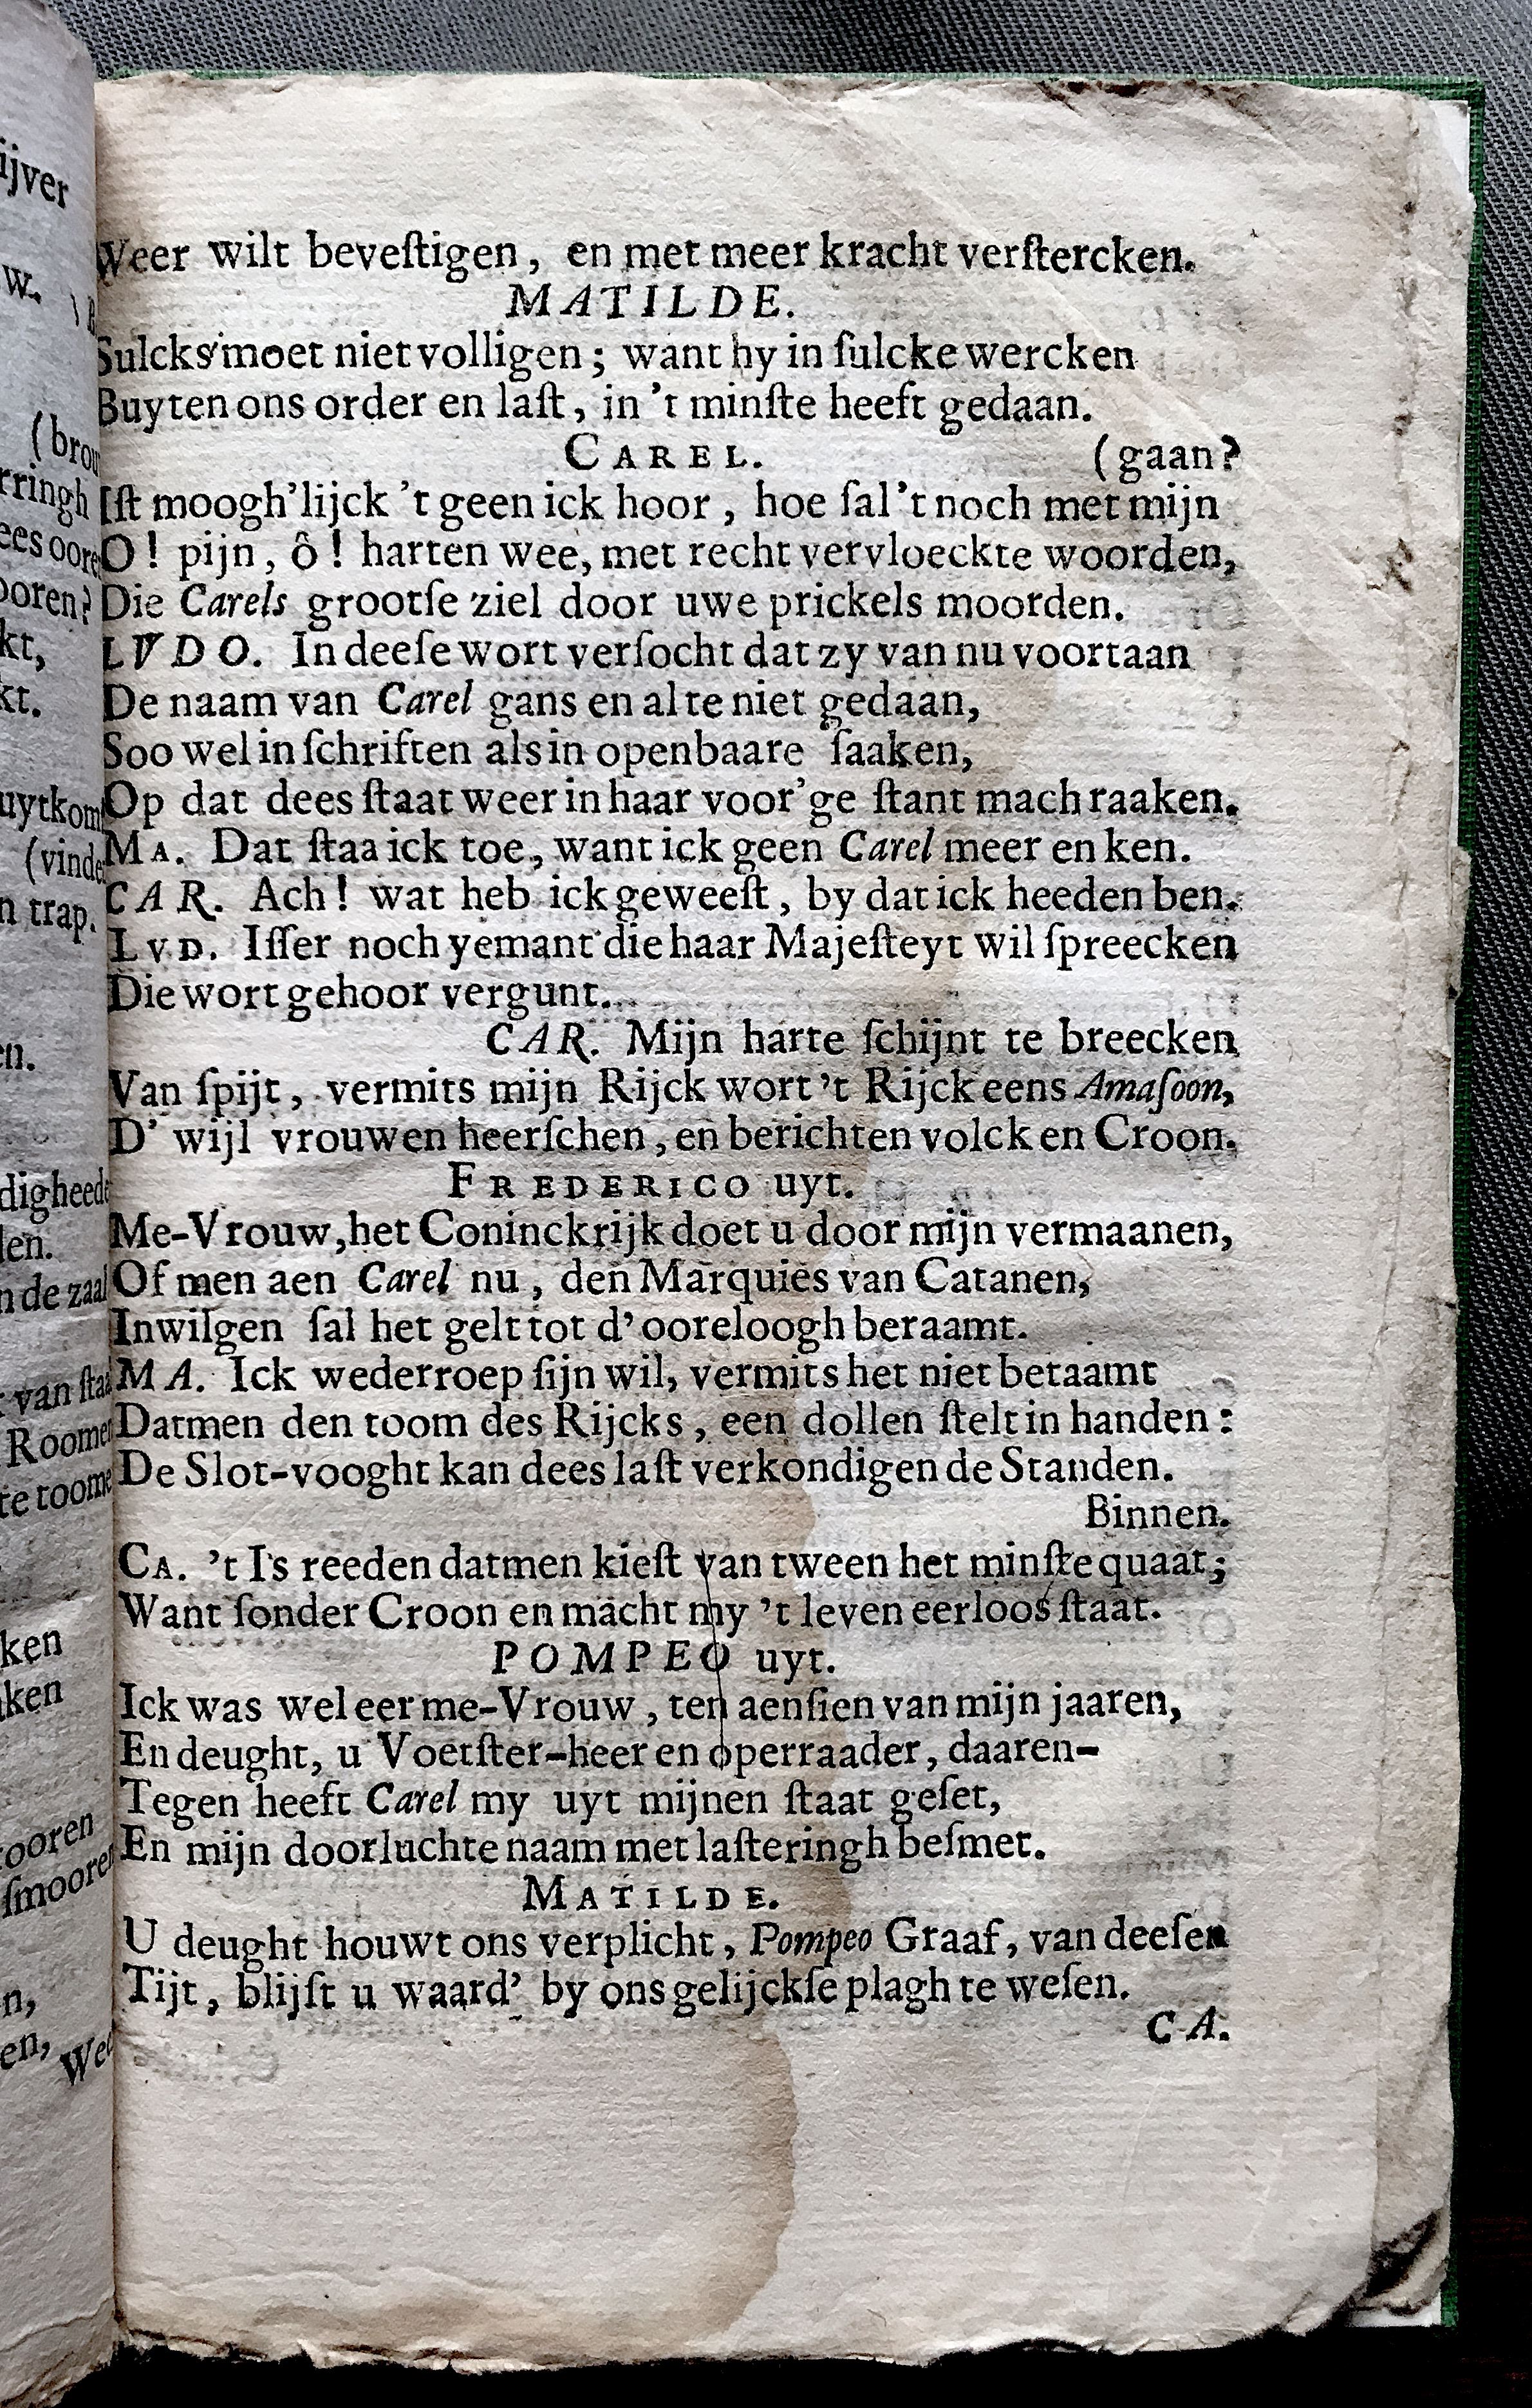 Weer wilt beveſtigen, en met meer kracht verſtercken.
MATILDE.
Sulcks moet niet volligen; want hy in ſulcke wercken
Buyten ons order en laſt, in 't minſte heeft gedaan.
CAREL. (gaan?
Iſt moogh'lijck 't geen ick hoor, hoe ſal 't noch met mijn
O! pijn, ô! harten wee, met recht vervloeckte woorden,
Die Carels grootſe ziel door uwe prickels moorden.
LVDO. In deeſe wort verſocht dat zy van nu voortaan
De naam van Carel gans en al te niet gedaan,
Soo wel in ſchriften als in openbaare ſaaken,
Op dat dees ſtaat weer in haar voor'ge ſtant mach raaken.
MA. Dat ſtaa ick toe, want ick geen Carel meer en ken.
CAR. Ach! wat heb ick geweeſt, by dat ick heeden ben.
LVD. Iſſer noch yemant die haar Majeſteyt wil ſpreecken
Die wort gehoor vergunt.
CAR. Mijn harte ſchijnt te breecken
Van ſpijt, vermits mijn Rijck wort 't Rijck eens Amaſoon,
D' wijl vrouwen heerſchen, en berichten volck en Croon.
FREDERICO uyt.
Me-Vrouw, het Coninckrijk doet u door mijn vermaanen,
Of men aen Carel nu, den Marquies van Catanen,
Inwilgen ſal het gelt tot d' ooreloogh beraamt.
MA. Ick wederroep ſijn wil, vermits het niet betaamt
Datmen den toom des Rijcks, een dollen ſtelt in handen:
De Slot-vooght kan dees laſt verkondigen de Standen.
Binnen.
CA. 't Is reeden datmen kieſt van tween het minſte quaat;
Want ſonder Croon en macht my 't leven eerloos ſtaat.
POMPEO uyt.
Ick was wel eer me-Vrouw, ten aenſien van mijn jaaren,
En deught, u Voetſter-heer en operraader, daaren-
Tegen heeft Carel my uyt mijnen ſtaat geſet,
En mijn doorluchte naam met laſteringh beſmet.
MATILDE.
U deught houwt ons verplicht, Pompeo Graaf, van deeſen
Tijt, blijſt u waard' by ons gelijckſe plagh te weſen.
CA.